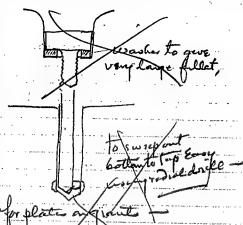 washer to give
very large fillet,
to sweep out
bottom to tap easy
radial drill —
for plates on joints —